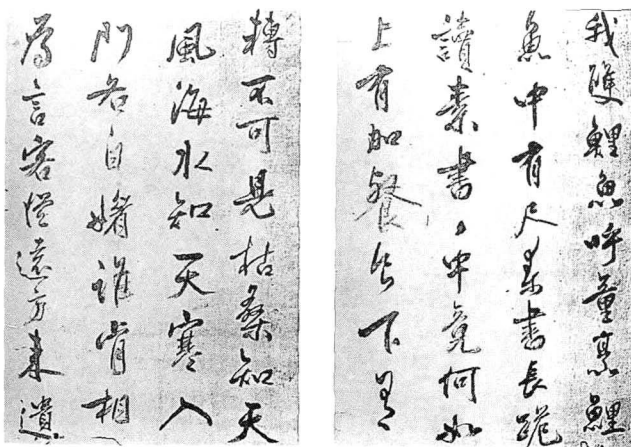 轉不可見枯桑知天
風海水知天寒入
門各自媚誰肯相
為言客從遠方來遺
我雙鯉魚呼童烹鯉
魚中有尺素書長跪
讀素書〻中竟何如
上有加餐食下有